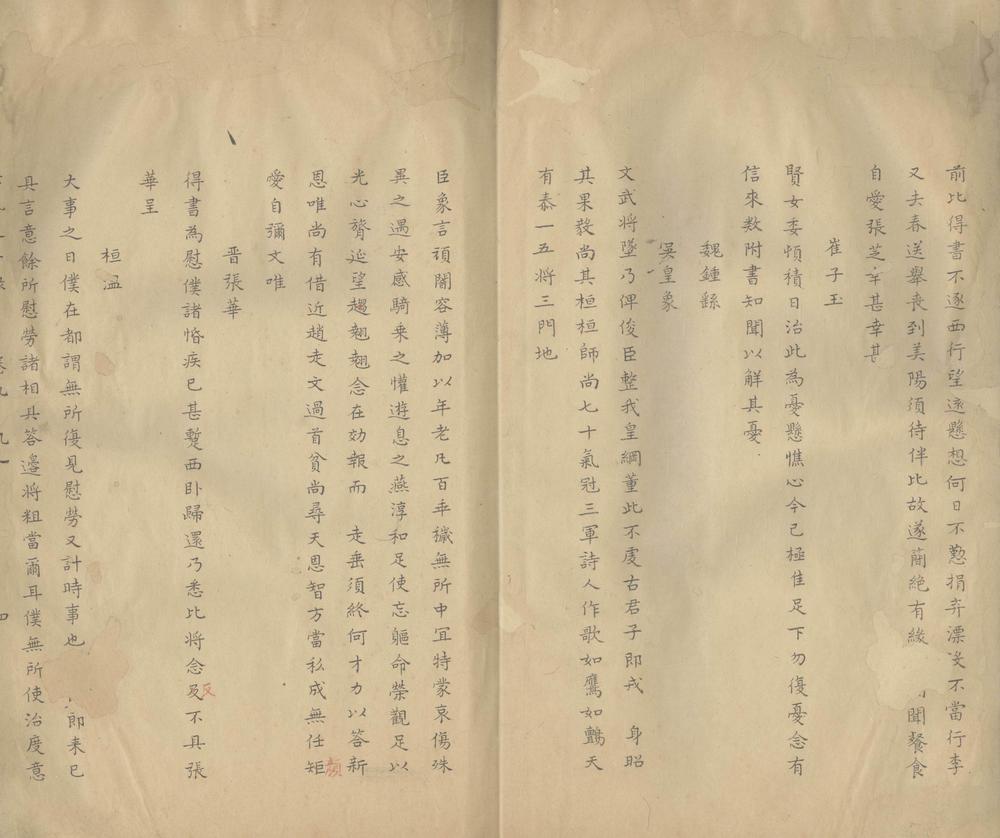 前比得書不逐西行望遠懸想何日不懃捐弃漂沒不當行李
又去春送舉喪到美陽須待伴比故遂蕳絕有緣 聞餐食
自愛張芝幸甚幸甚
崔子玉
賢女委頓積日治此為憂懸憔心今已極佳足下勿復憂念有
信來數附書知聞以解其憂
魏鍾繇
吳皇象
文武將墜乃俾俊臣整我皇綱董此不虔古君子即戎 身昭
其果毅尚其桓桓師尚七十氣冠三軍詩人作歌如鷹如鸇天
有泰一五將三門地
臣象言頑闇容薄加以年老凡百乖穢無所中宜特蒙哀傷殊
異之遇安感騎乘之懽遊息之燕淳和足使忘軀命榮觀足以
光心膂延望趨翹翹念在効報而 走垂須終何才力以答新
恩唯尚有借近趙走文過首貧尚尋天恩智方當私成無任矩
顏
愛自彌文唯
晋張華
得書為慰僕諸惛疾已甚蹔西卧歸還乃悉比將念及不具張
反
華呈
桓温
大事之日僕在都謂無所復見慰勞又計時事也 郎来已
具言意餘所慰勞諸相具答邉將粗當爾耳僕無所使治度意